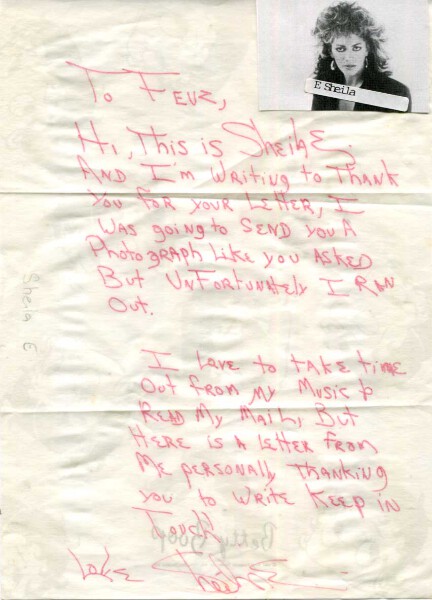 E Sheila
To Feuz,
Hi, This is Sheila E.
And I'm writing to Thank
You for your Letter, I
Was going to Send you A
Photograph like you asked
But Unfortunately I Ran
Out.
Sheila E
I Love to take time
Out from my Music to
Read My Mail, But
Here is a letter from
Me personally thanking
you to write Keep in
Touch
Betty Boop
Love Sheila E.